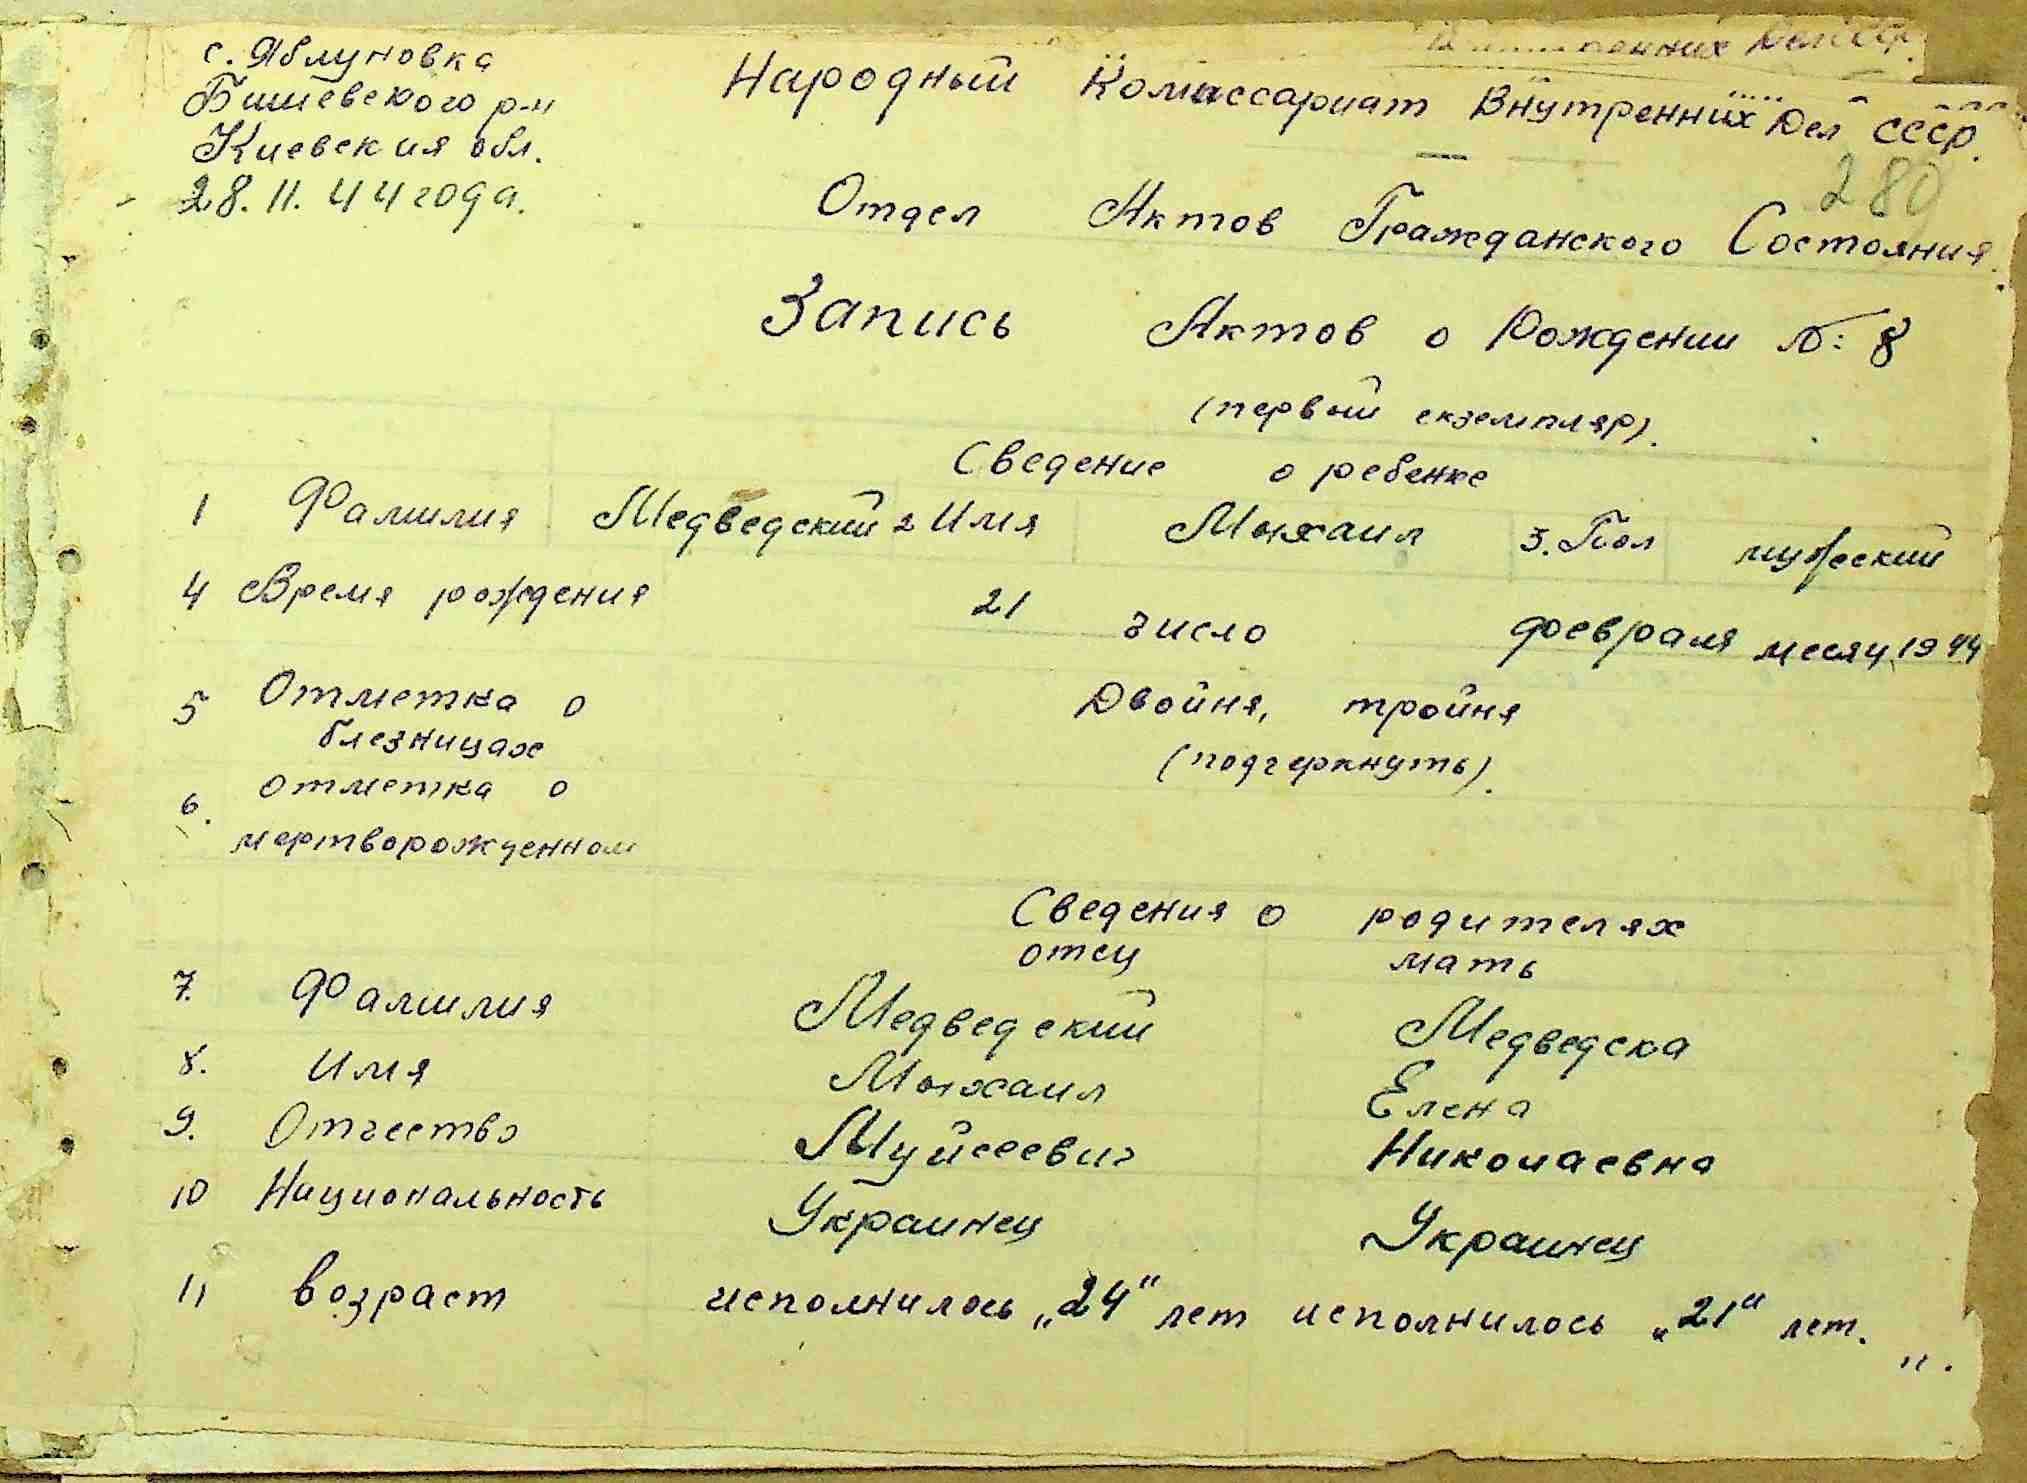 с. Яблуновка
Бишевского р-н
Киевския обл.
28. II. 44 года.
Дел СССР.
Народный Комиссариат Внутренних Дел СССР.
280
Отдел Актов Гражданского Состояния.
Запись Актов о Рождении №: 8
(первый екземпляр).
Сведение о ребенке
1 Фамилия Медведский 2 Имя Мыхаил 3. Пол мужеский
4 Время рождения 21 число февраля месяц 1944
5 Отметка о блезницах Двойня, тройня
(подчеркнуть).
6. Отметка о
мертворожденном
Сведения о родителях
отец мать
7. Фамилия Медведский Медведска
8. Имя Мыхаил Елена
9. Отчество Муйсеевич Николаевна
10 Национальность Украинец Украинец
11 Возраст исполнилось „24“ лет исполнилось „21“ лет.